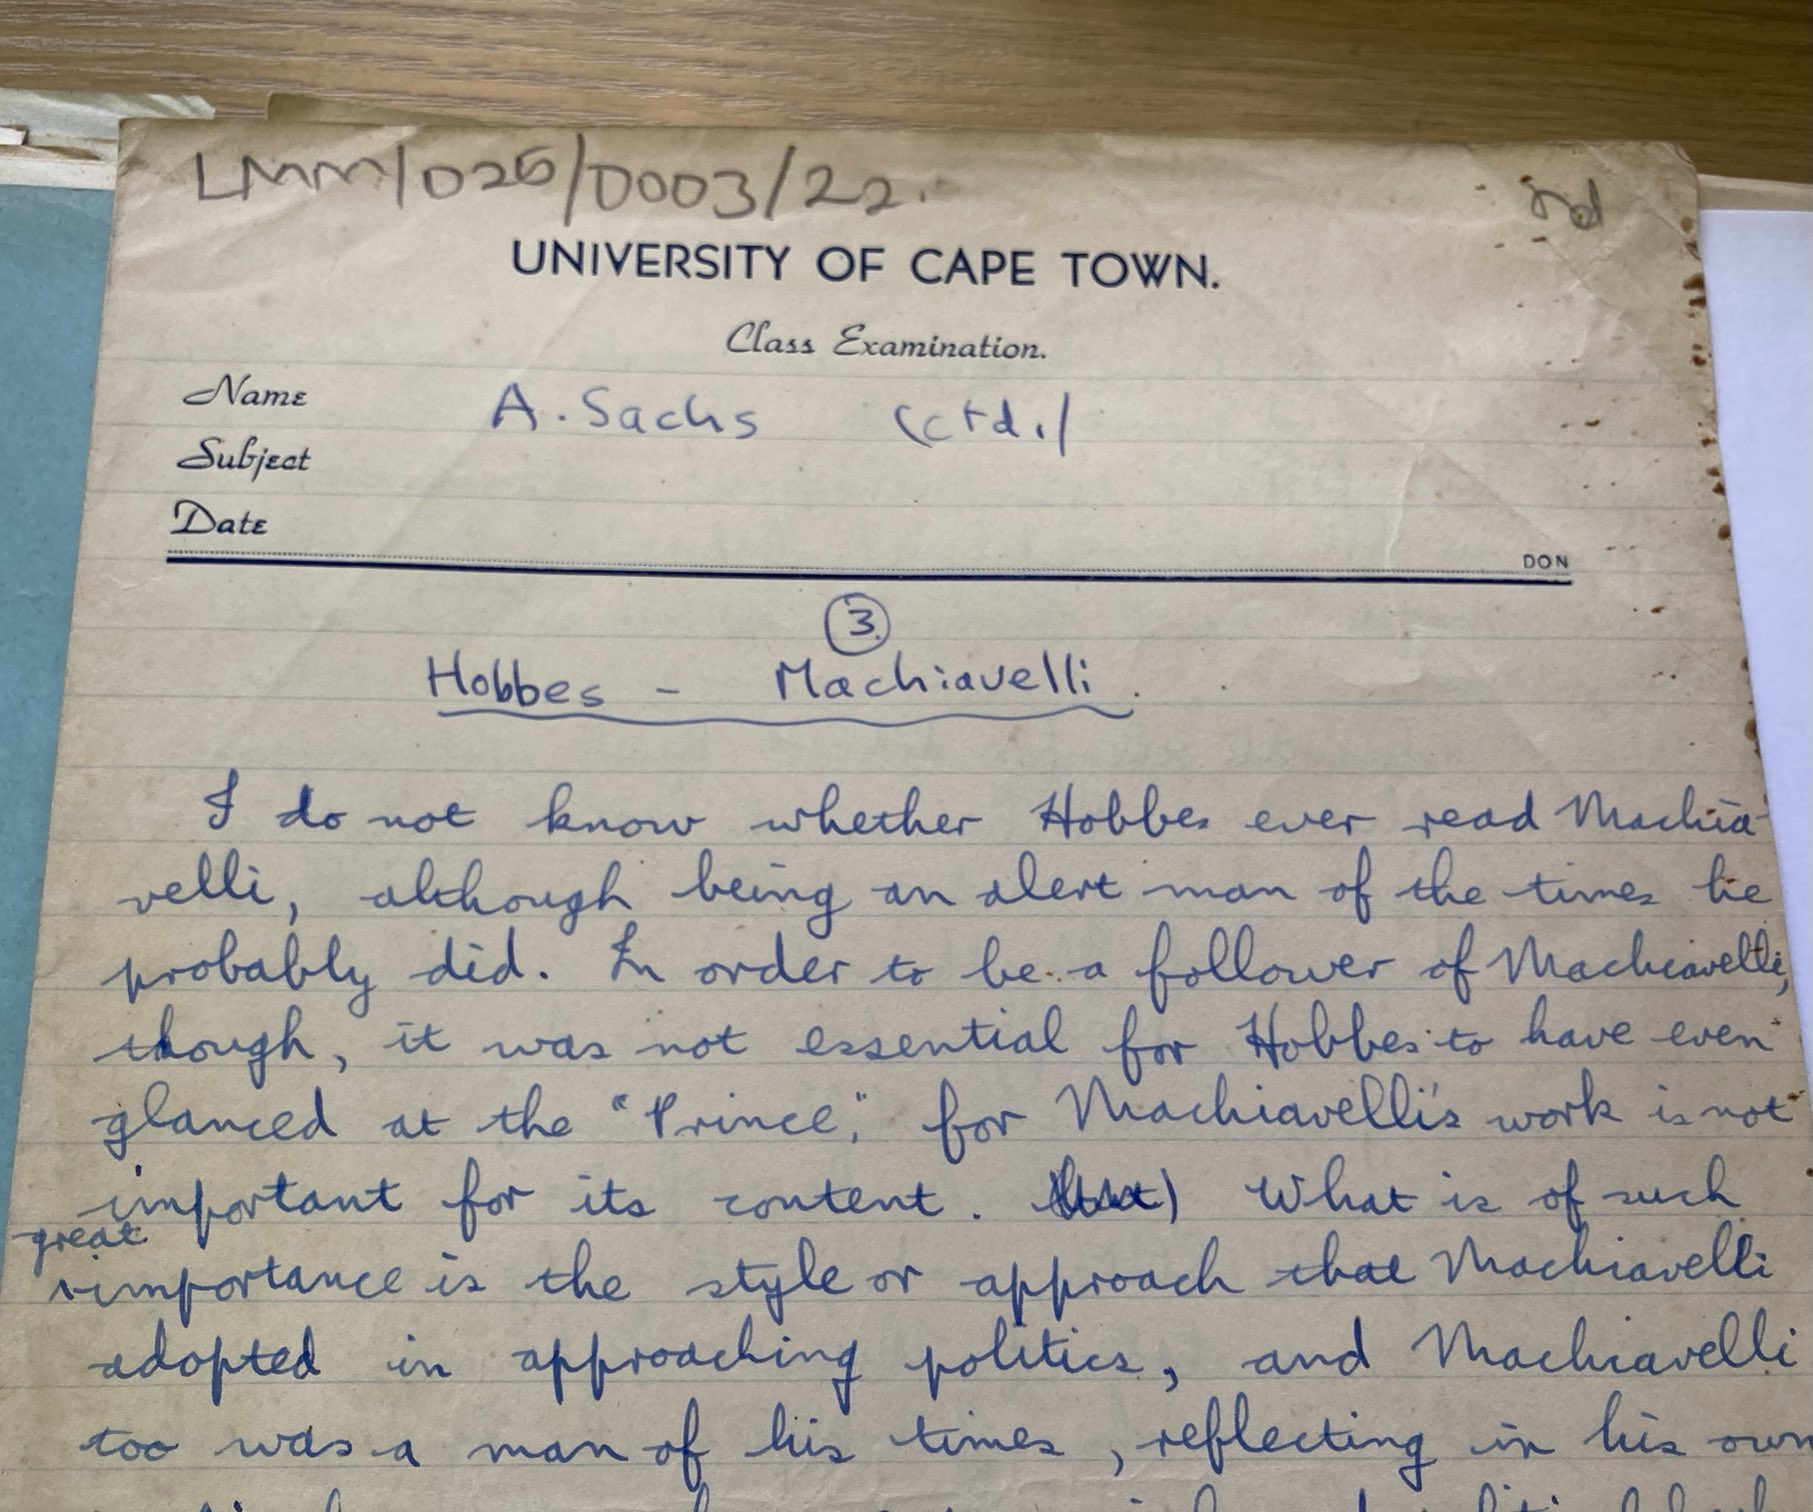 LMM/025/0003/22.
UNIVERSITY OF CAPE TOWN.
Class Examination.
Name A. Sachs (ctd.)
Subject
Date
DON
3.
Hobbes - Machiavelli.
I do not know whether Hobbes ever read Machia-
velli, although being an alert man of the times he
probably did. In order to be a follower of Machiavelli,
though, it was not essential for Hobbes to have even
glanced at the "Prince", for Machiavelli's work is not
important for its content. What is of such
great
importance is the style or approach that Machiavelli
adopted in approaching politics, and Machiavelli
too was a man of his times, reflecting in his own